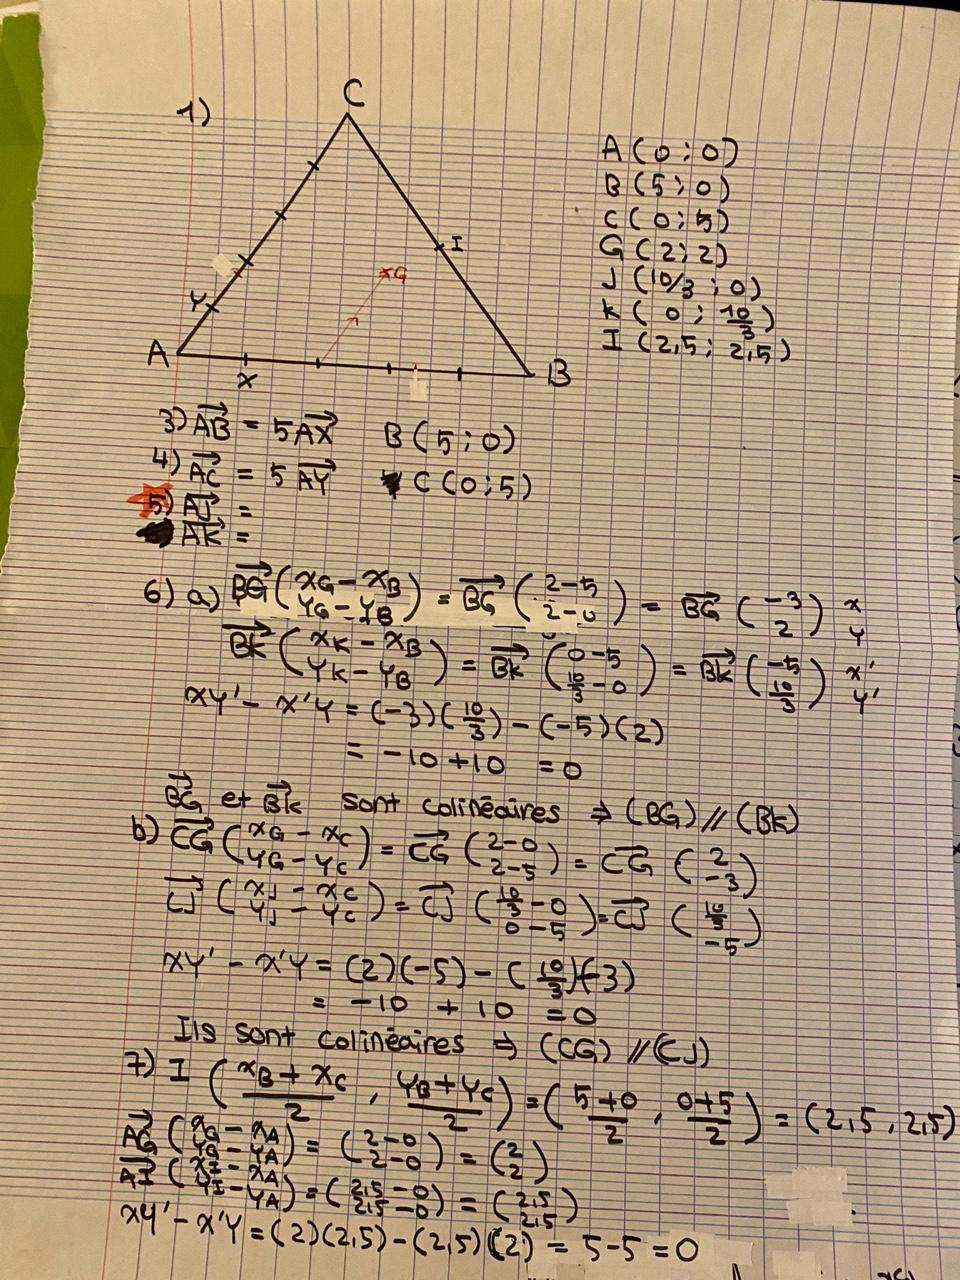 1)
C
I
G
Y
A
X
B
A(0;0)
B(5;0)
C(0;5)
G(2;2)
J(10/3;0)
K(0;10/3)
I(2,5;2,5)
3) AB⃗ = 5AX⃗ B(5;0)
4) AC⃗ = 5AY⃗ C(0;5)
5) AJ⃗ =
AK⃗ =
6) a) BG⃗ (xG - xB / yG - yB) = BG⃗ (2-5 / 2-0) = BG⃗ (-3 / 2) x y
BK⃗ (xK - xB / yK - yB) = BK⃗ (0-5 / 10/3 - 0) = BK⃗ (-5 / 10/3) x' y'
xy' - x'y = (-3)(10/3) - (-5)(2)
= -10 + 10 = 0
BG⃗ et BK⃗ sont colinéaires ⇒ (BG) // (BK)
b) CG⃗ (xG - xC / yG - yC) = CG⃗ (2-0 / 2-5) = CG⃗ (2 / -3)
CJ⃗ (xJ - xC / yJ - yC) = CJ⃗ (10/3 - 0 / 0-5) = CJ⃗ (10/3 / -5)
xy' - x'y = (2)(-5) - (10/3)(-3)
= -10 + 10 = 0
Ils sont colinéaires ⇒ (CG) // (CJ)
7) I ((xB + xC)/2 , (yB + yC)/2) = ((5+0)/2 , (0+5)/2) = (2,5 , 2,5)
AG⃗ (xG - xA / yG - yA) = (2-0 / 2-0) = (2 / 2)
AI⃗ (xI - xA / yI - yA) = (2,5-0 / 2,5-0) = (2,5 / 2,5)
xy' - x'y = (2)(2,5) - (2,5)(2) = 5-5 = 0